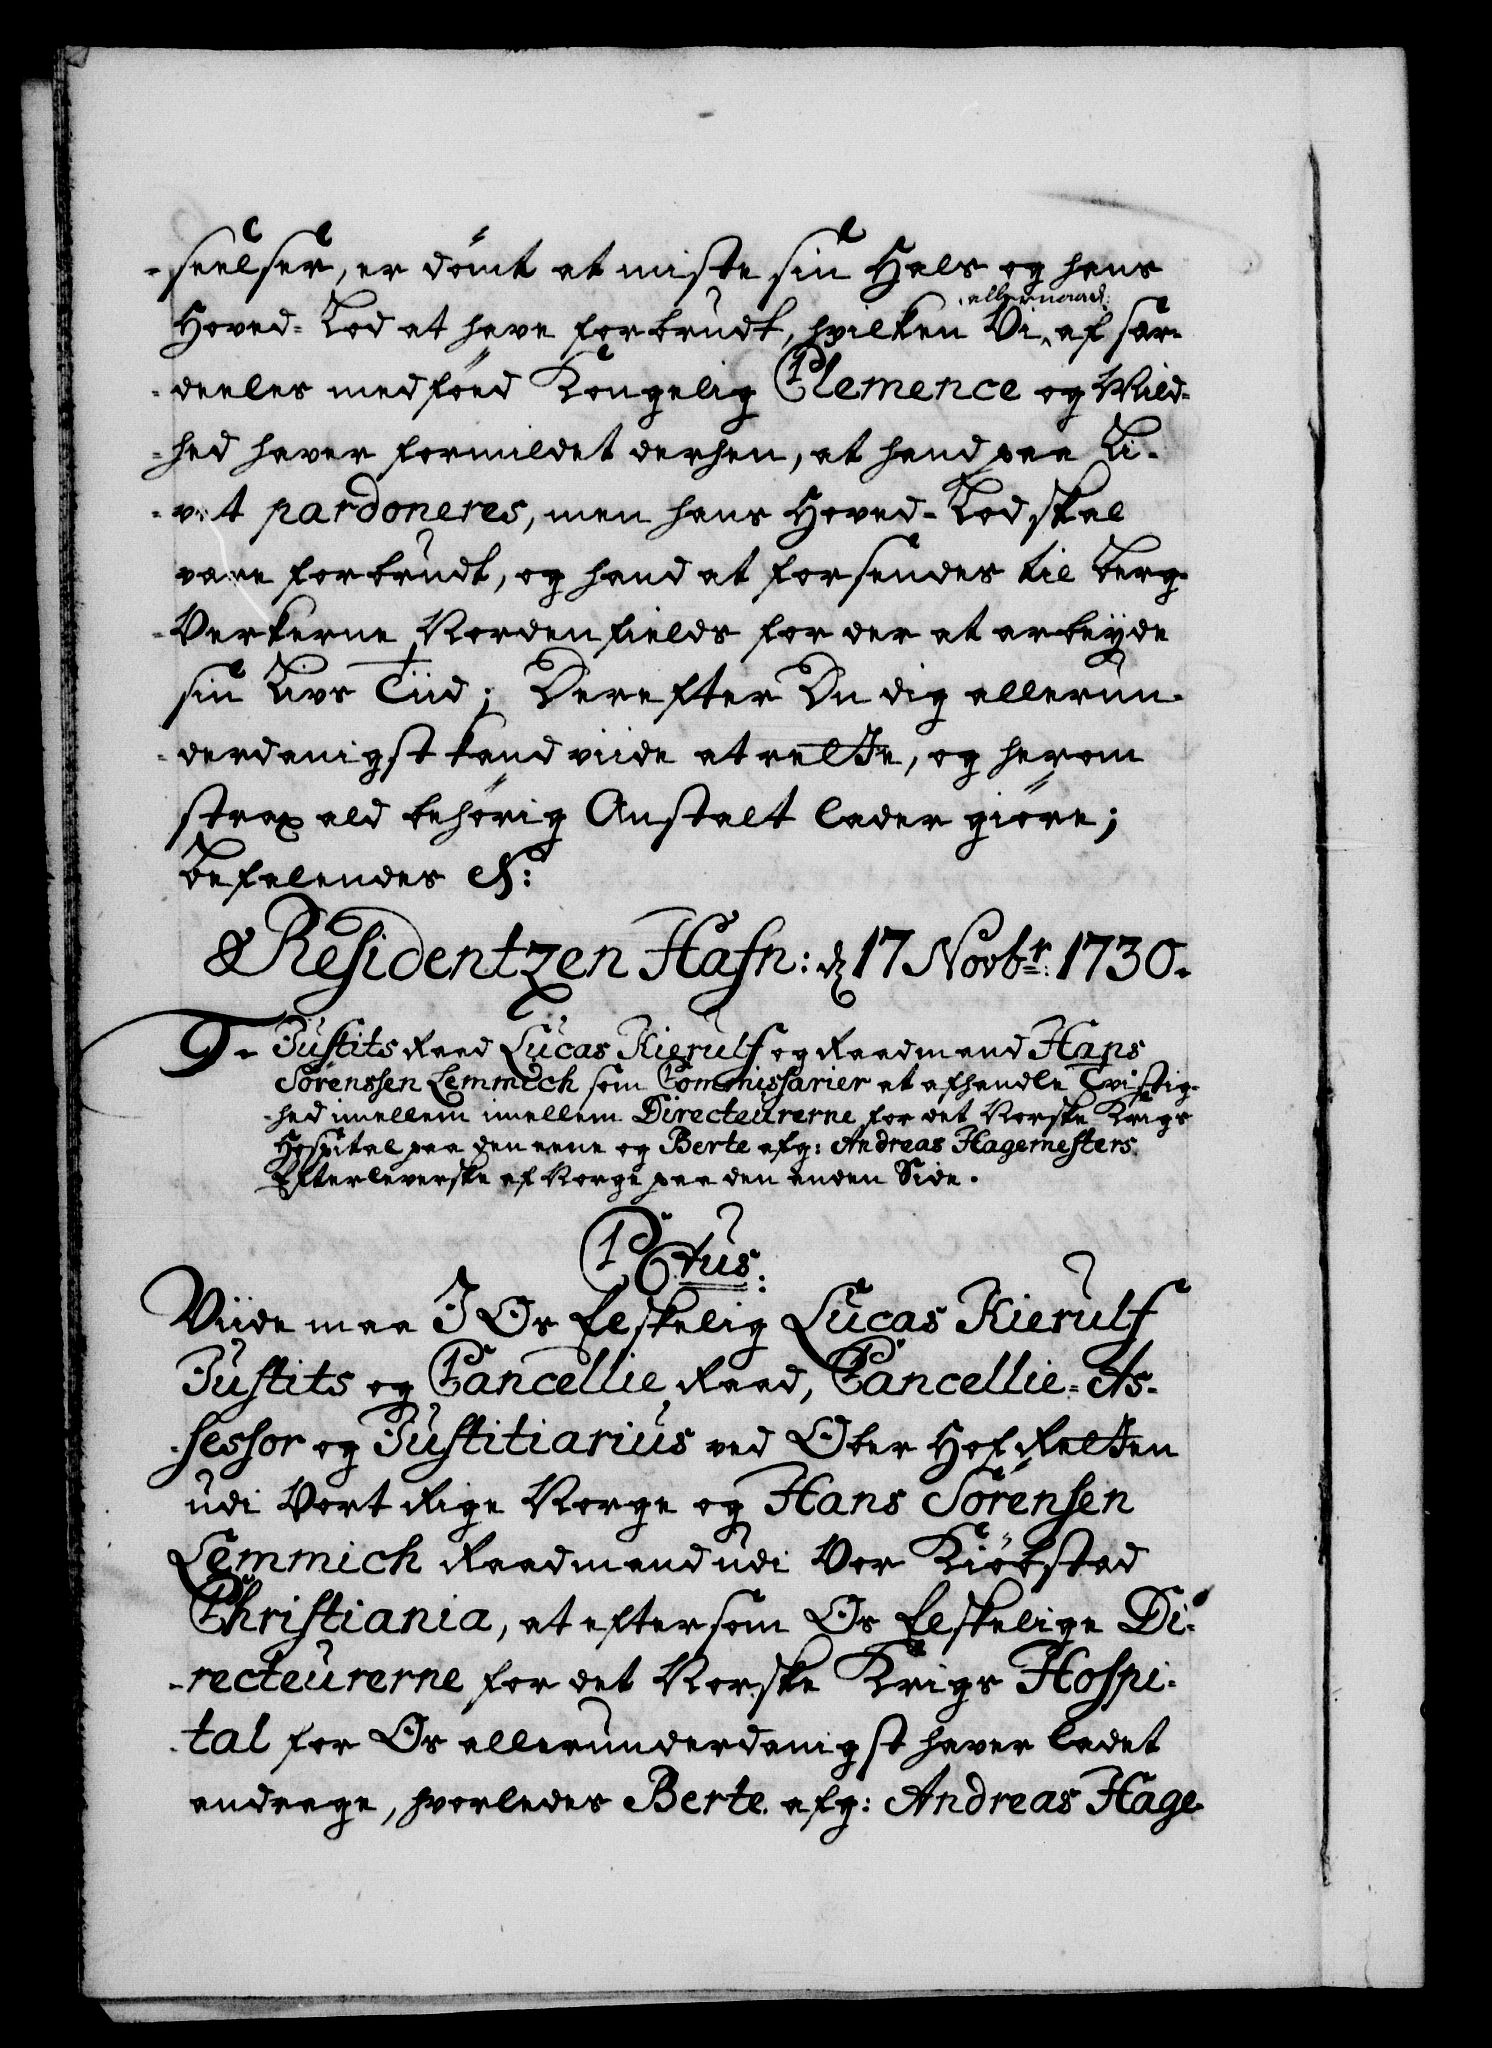 -seelser, er dömt at miste sin Hals og hans
Hoved-Lod at have forbrudt, hvilken Vi allernaad: af sær-
-deeles medföed Kongelig Clemence og Mild-
-hed haver formildet derhen, at hand paa Li-
-vet pardoneres, men hans Hoved-Lod skal
være forbrudt, og hand at forsendes til Berg-
-Verkerne Nordenfields for der at arbeyde
sin Livs Tiid; Derefter Du dig allerun-
-derdanigst kand viide at rette, og herom
strax ald behörig Anstalt lader giöre;
Befalendes &:
Residentzen Hafn: d 17 Novbr: 1730.
9. Justits Raad Lucas Kierulf og Raadmand Hans
Sörenssen Lemmich som Commissarier at afhandle Tvistig-
-hed imellem imellem Directeurerne for det Norske Krigs
Hospital paa den eene og Berte afg: Andreas Hagemesters
Efterleverske af Norge paa den anden Side.
C6tus:
Viide maa I Os Elskelig Lucas Kierulf
Justits og Cancellie Raad, Cancellie-As-
-sessor og Justitiarius ved Ober Hof Retten
udi Vort Rige Norge og Hans Sörensen
Lemmich Raadmand udi Vor Kiöbstad
Christiania, at eftersom Os Elskelige Di-
-recteurerne for det Norske Krigs Hospi-
-tal for Os allerunderdanigst haver ladet
andrage, hvorledes Berte afg: Andreas Hage-